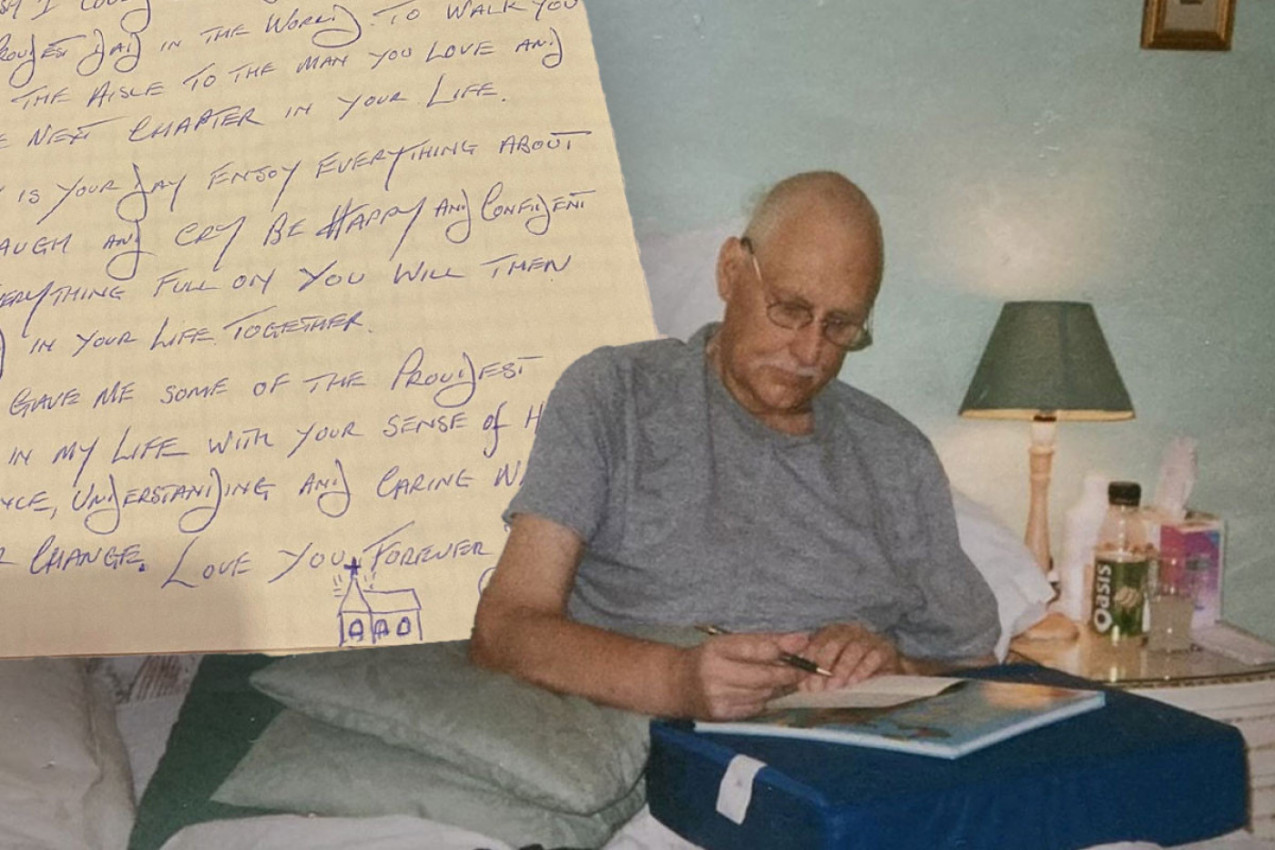 I COULD
PROUDEST DAD IN THE WORLD. TO WALK YOU
THE AISLE TO THE MAN YOU LOVE AND
NEXT CHAPTER IN YOUR LIFE.
IS YOUR DAY ENJOY EVERYTHING ABOUT
LAUGH AND CRY BE HAPPY AND CONFIDENT
EVERYTHING FULL ON YOU WILL THEN
IN YOUR LIFE TOGETHER.
GAVE ME SOME OF THE PROUDEST
IN MY LIFE WITH YOUR SENSE of H
UNDERSTANDING AND CARING
CHANGE. LOVE YOU FOREVER
OASIS